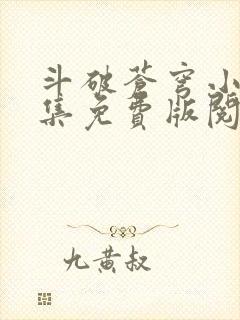 斗破苍穹小
集免费版阅
九黄叔